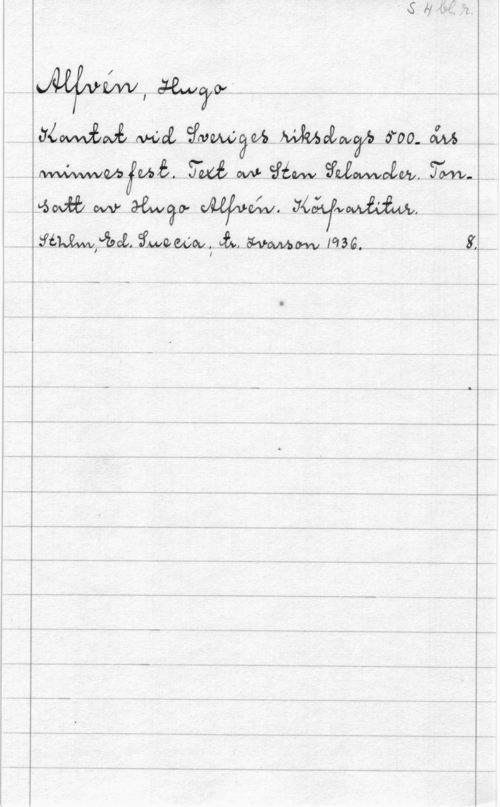 S 4 bl. r.
Alfvén, Hugo
Kantat vid Sveriges riksdags 500-års
minnesfest. Text av Sten Selander. Ton-
satt av Hugo Alfvén. Körpartitur.
Sthlm, Ed. Suecia, tr. Ivarson 1936. 8.